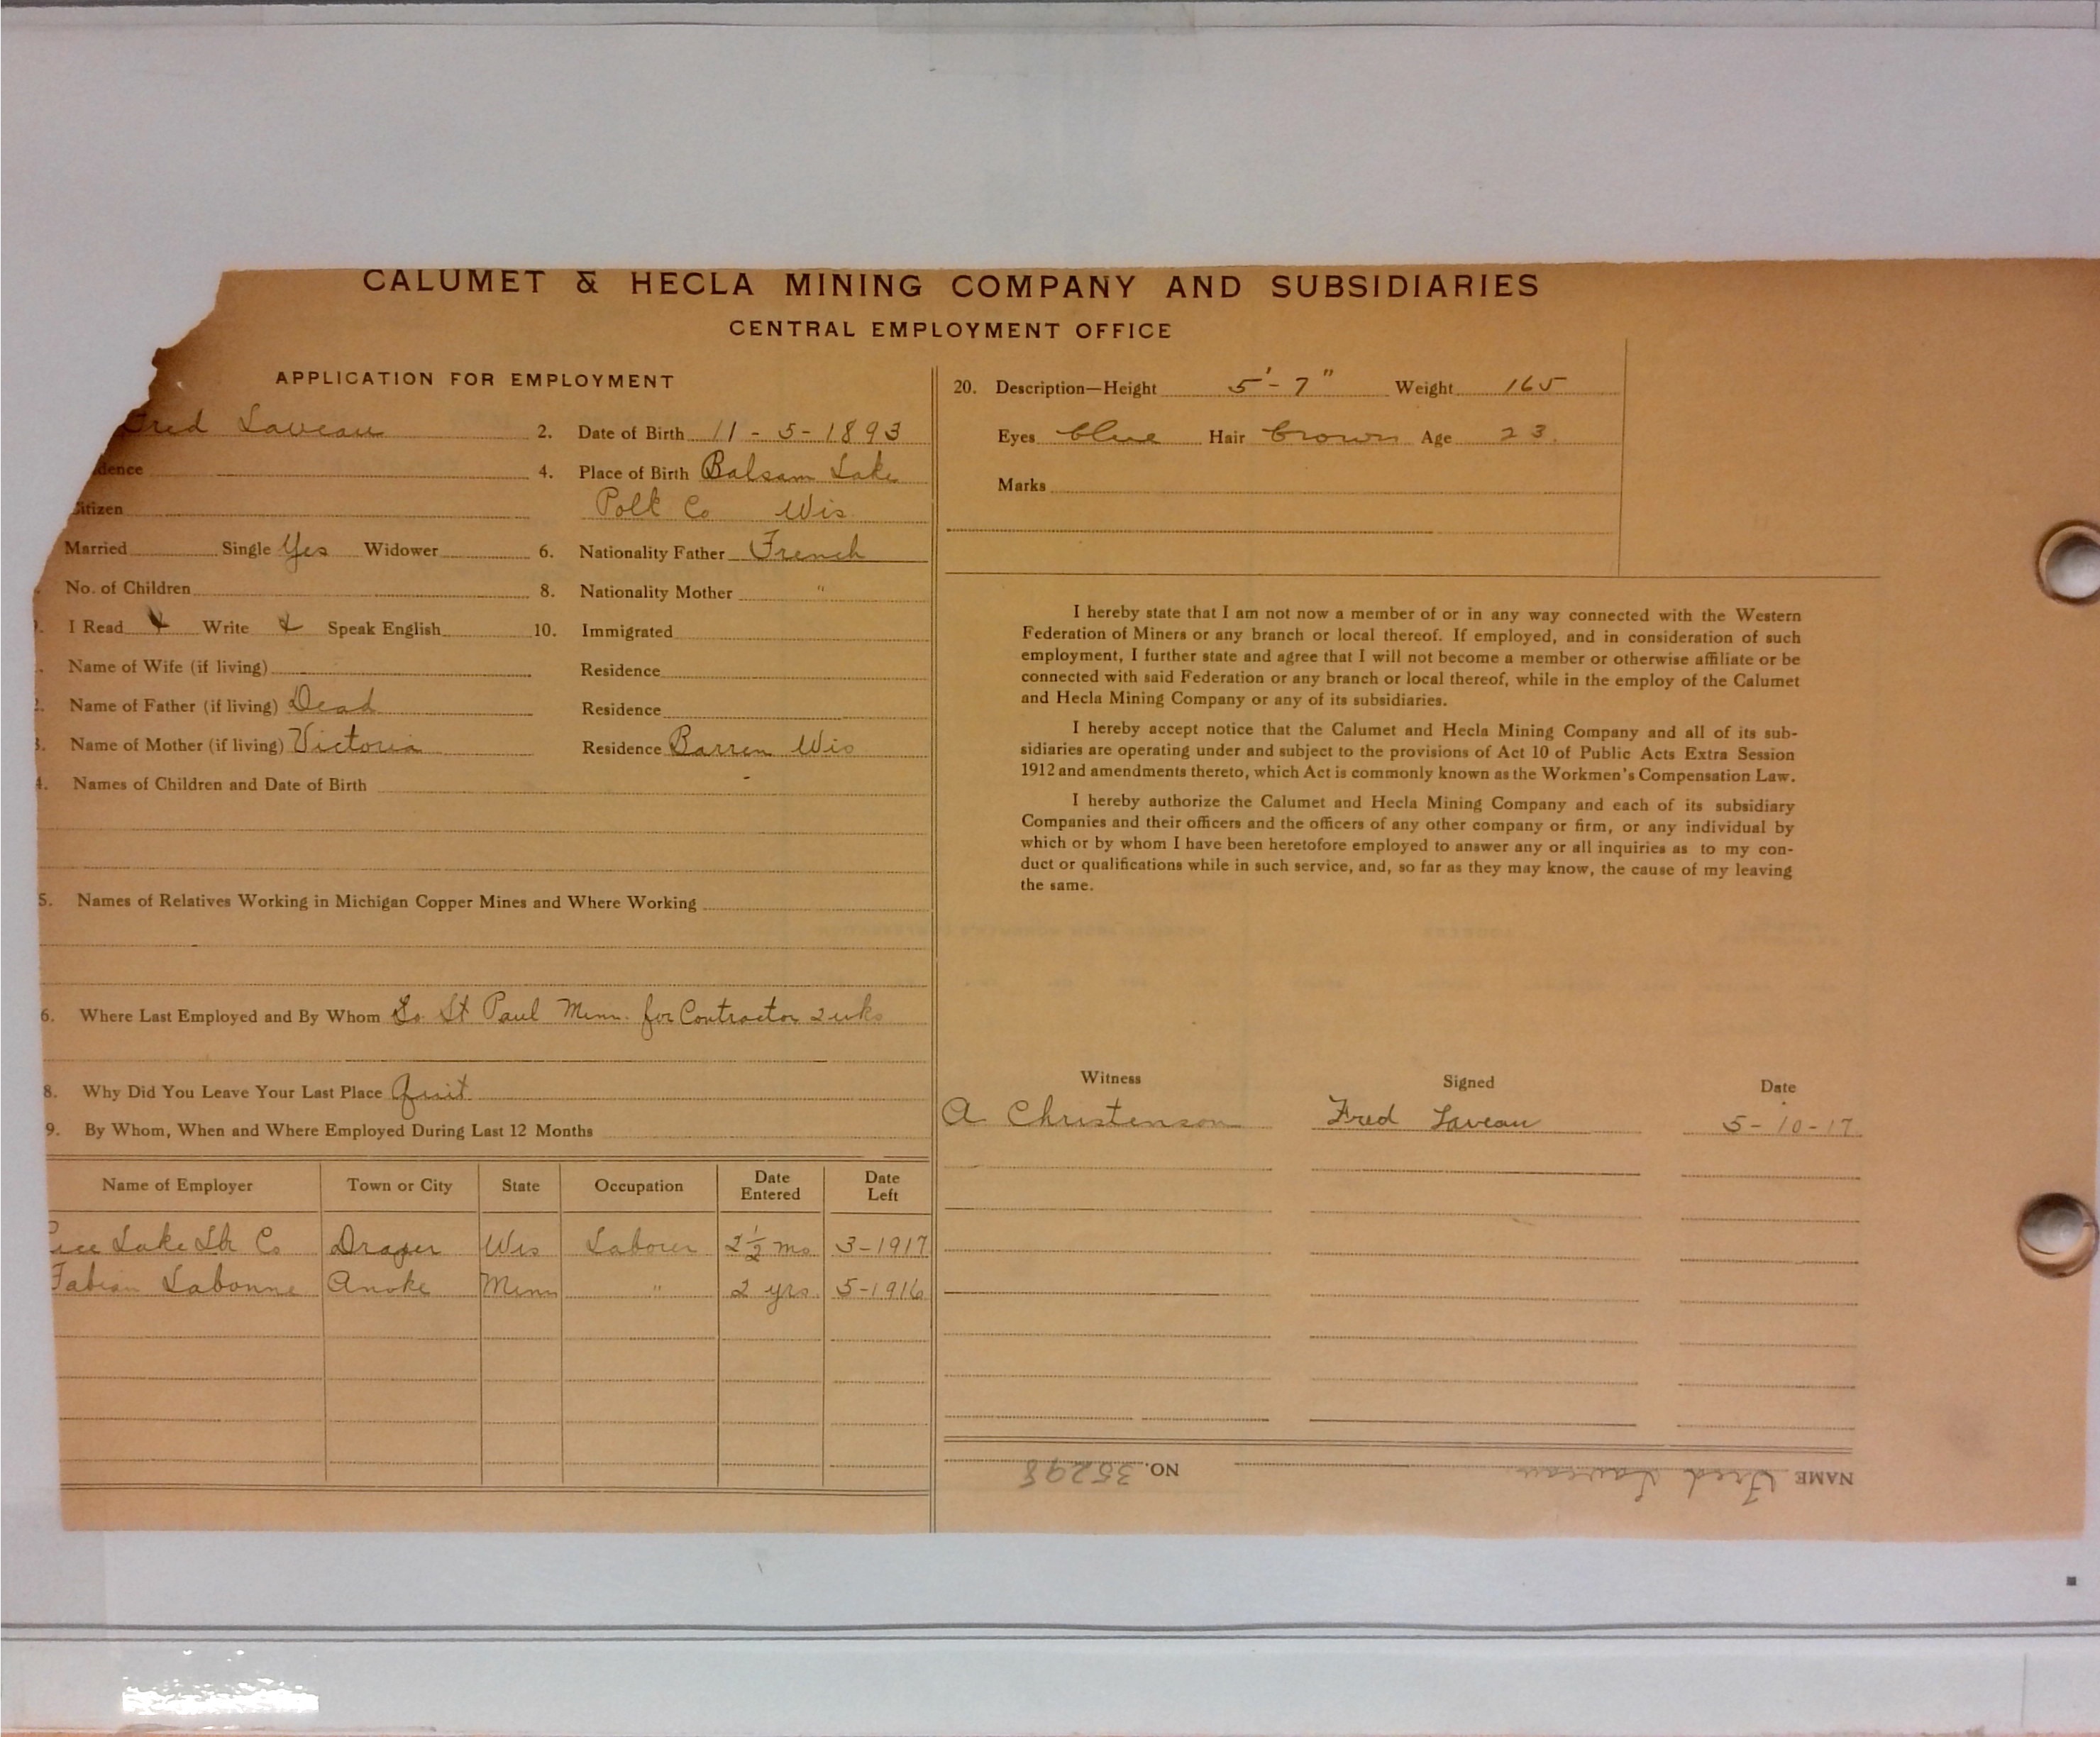 CALUMET & HECLA MINING COMPANY AND SUBSIDIARIES
CENTRAL EMPLOYMENT OFFICE
APPLICATION FOR EMPLOYMENT
Fred Laveau 2. Date of Birth 11-5-1893
dence 4. Place of Birth Balsam Lake
Citizen Polk Co Wis
Married Single Yes Widower 6. Nationality Father French
No. of Children 8. Nationality Mother "
I Read Write Speak English 10. Immigrated
Name of Wife (if living) Residence
Name of Father (if living) Dead Residence
Name of Mother (if living) Victoria Residence Barren Wis
4. Names of Children and Date of Birth
5. Names of Relatives Working in Michigan Copper Mines and Where Working
6. Where Last Employed and By Whom So. St Paul Minn. for Contractor 2 wks
8. Why Did You Leave Your Last Place Quit
9. By Whom, When and Where Employed During Last 12 Months
Name of Employer Town or City State Occupation Date Entered Date Left
Rice Lake Lbr Co Draper Wis Laborer 2½ mo 3-1917
Fabian Labonne Anoke Minn " 2 yrs. 5-1916
20. Description—Height 5'-7" Weight 165
Eyes blue Hair brown Age 23.
Marks
I hereby state that I am not now a member of or in any way connected with the Western
Federation of Miners or any branch or local thereof. If employed, and in consideration of such
employment, I further state and agree that I will not become a member or otherwise affiliate or be
connected with said Federation or any branch or local thereof, while in the employ of the Calumet
and Hecla Mining Company or any of its subsidiaries.
I hereby accept notice that the Calumet and Hecla Mining Company and all of its sub-
sidiaries are operating under and subject to the provisions of Act 10 of Public Acts Extra Session
1912 and amendments thereto, which Act is commonly known as the Workmen's Compensation Law.
I hereby authorize the Calumet and Hecla Mining Company and each of its subsidiary
Companies and their officers and the officers of any other company or firm, or any individual by
which or by whom I have been heretofore employed to answer any or all inquiries as to my con-
duct or qualifications while in such service, and, so far as they may know, the cause of my leaving
the same.
Witness Signed Date
A Christenson Fred Laveau 5-10-17
NAME Fred Laveau NO. 35298